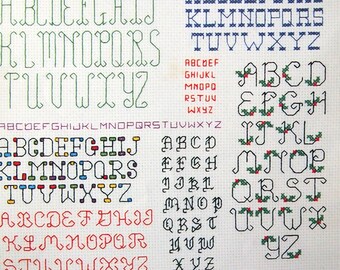 ABCDEFGHIJ
KLMNOPQRS
TUVWXYZ
KLMNOPQRS
TUVWXYZ
ABCD
EFGHI
JKLM
NOPQ
RSTUV
WXYZ
ABCDEFGHIJKLMNOPQRSTUVWXYZ
ABCDEFGHIJ
KLMNOPQRS
TUVWXYZ
ABCDEFGHIJ
KLMNOPQRS
TUVWXYZ
ABC
DEFG
HIJK
LMNOP
QRST
UVW
XYZ
ABCD
EFGH
IJKL
MNOP
QRST
UVWX
YZ